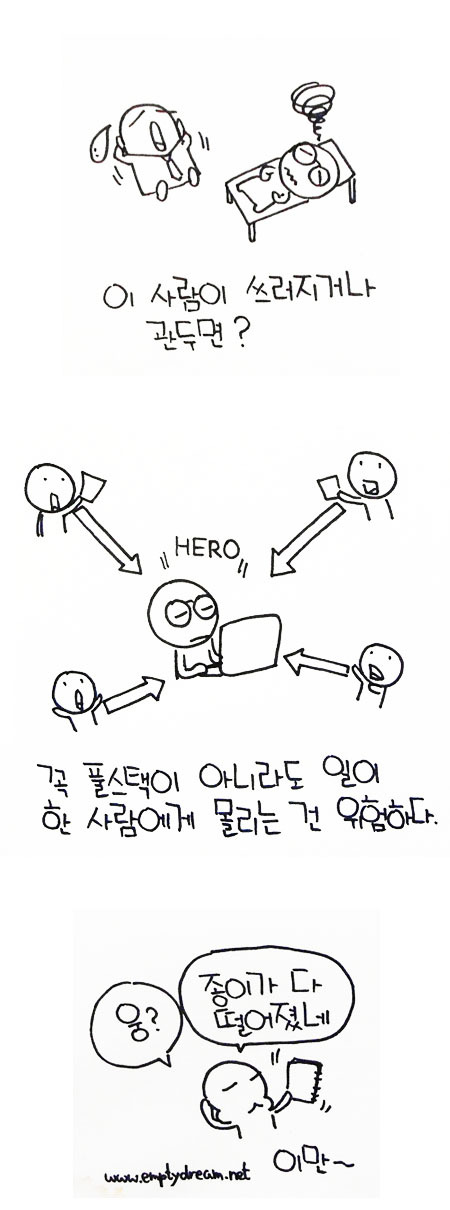 이 사람이 쓰러지거나
관두면?
HERO
꼭 풀스택이 아니라도 일이
한 사람에게 몰리는 건 위험하다.
웅?
종이가 다
떨어졌네
이만~
www.emptydream.net